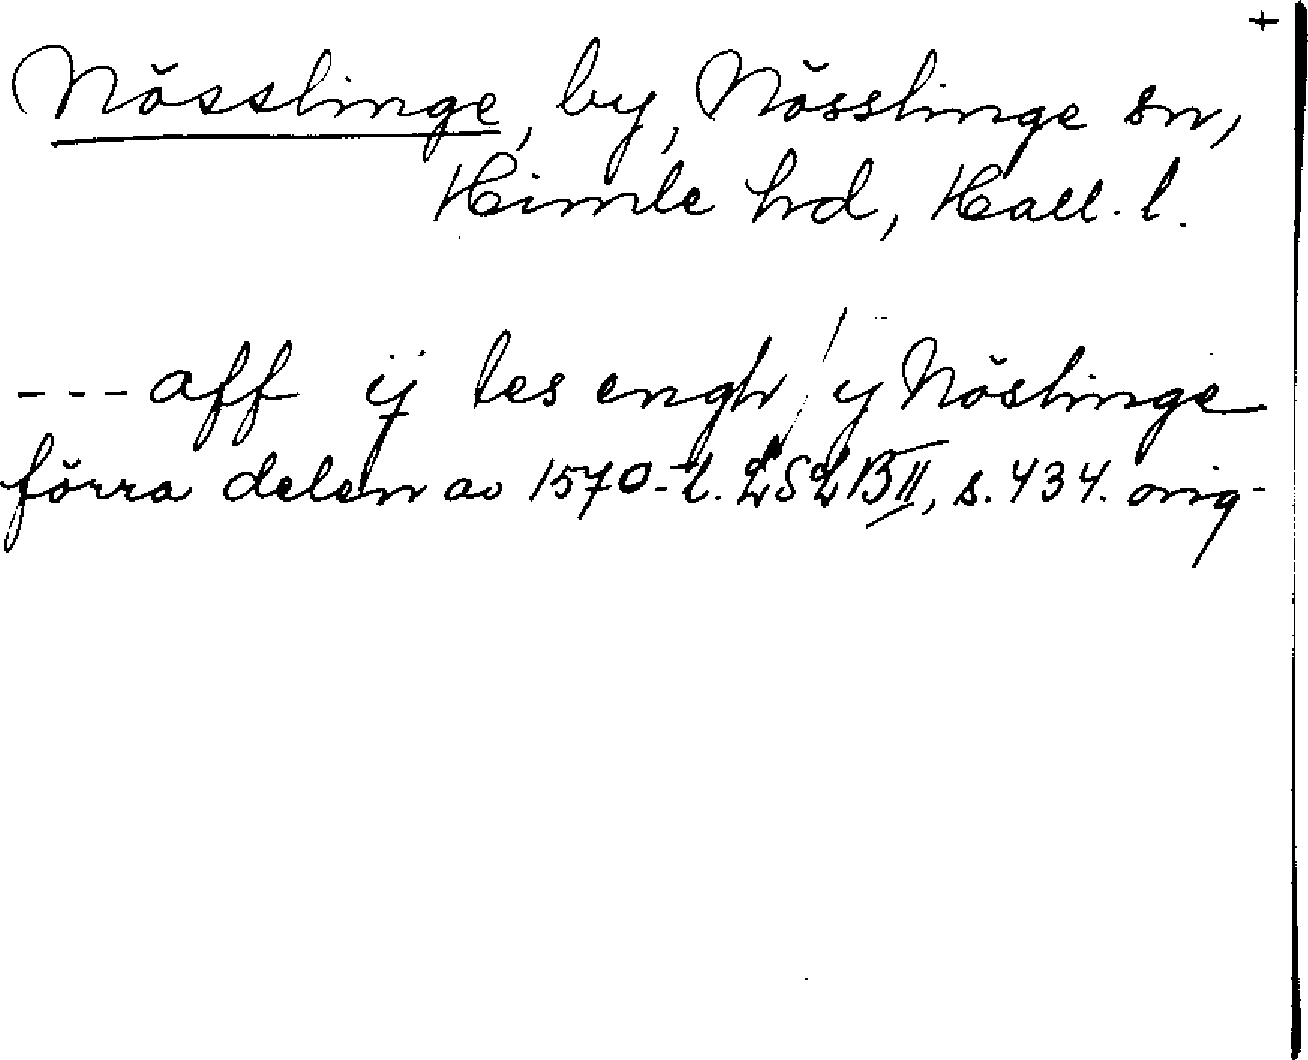 +
Nösslinge, by, Nösslinge sn,
Himle hd, Hall. l.
--- aff ij les engh / y Nöslinge
förra delen av 1570-t. LSL B II, s. 434. orig-